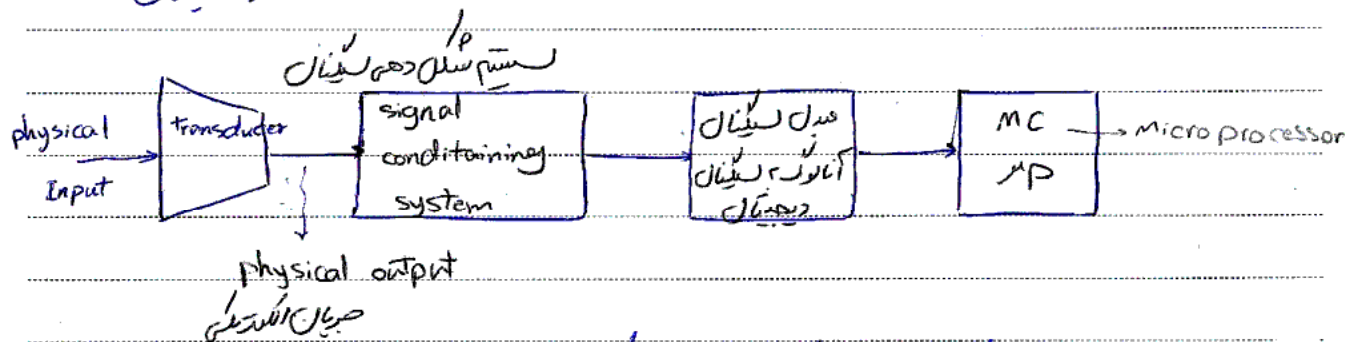 سیستم شکل دهی سیگنال
physical
Input
transducer
signal
conditaining
system
مبدل سیگنال
آنالوگ به سیگنال
دیجیتال
MC
μP
Microprocessor
physical output
جریان الکتریکی